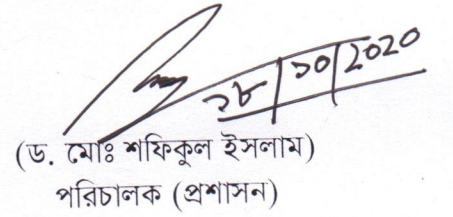 ১৮/১০/2020
(ড. মোঃ শফিকুল ইসলাম)
পরিচালক (প্রশাসন)